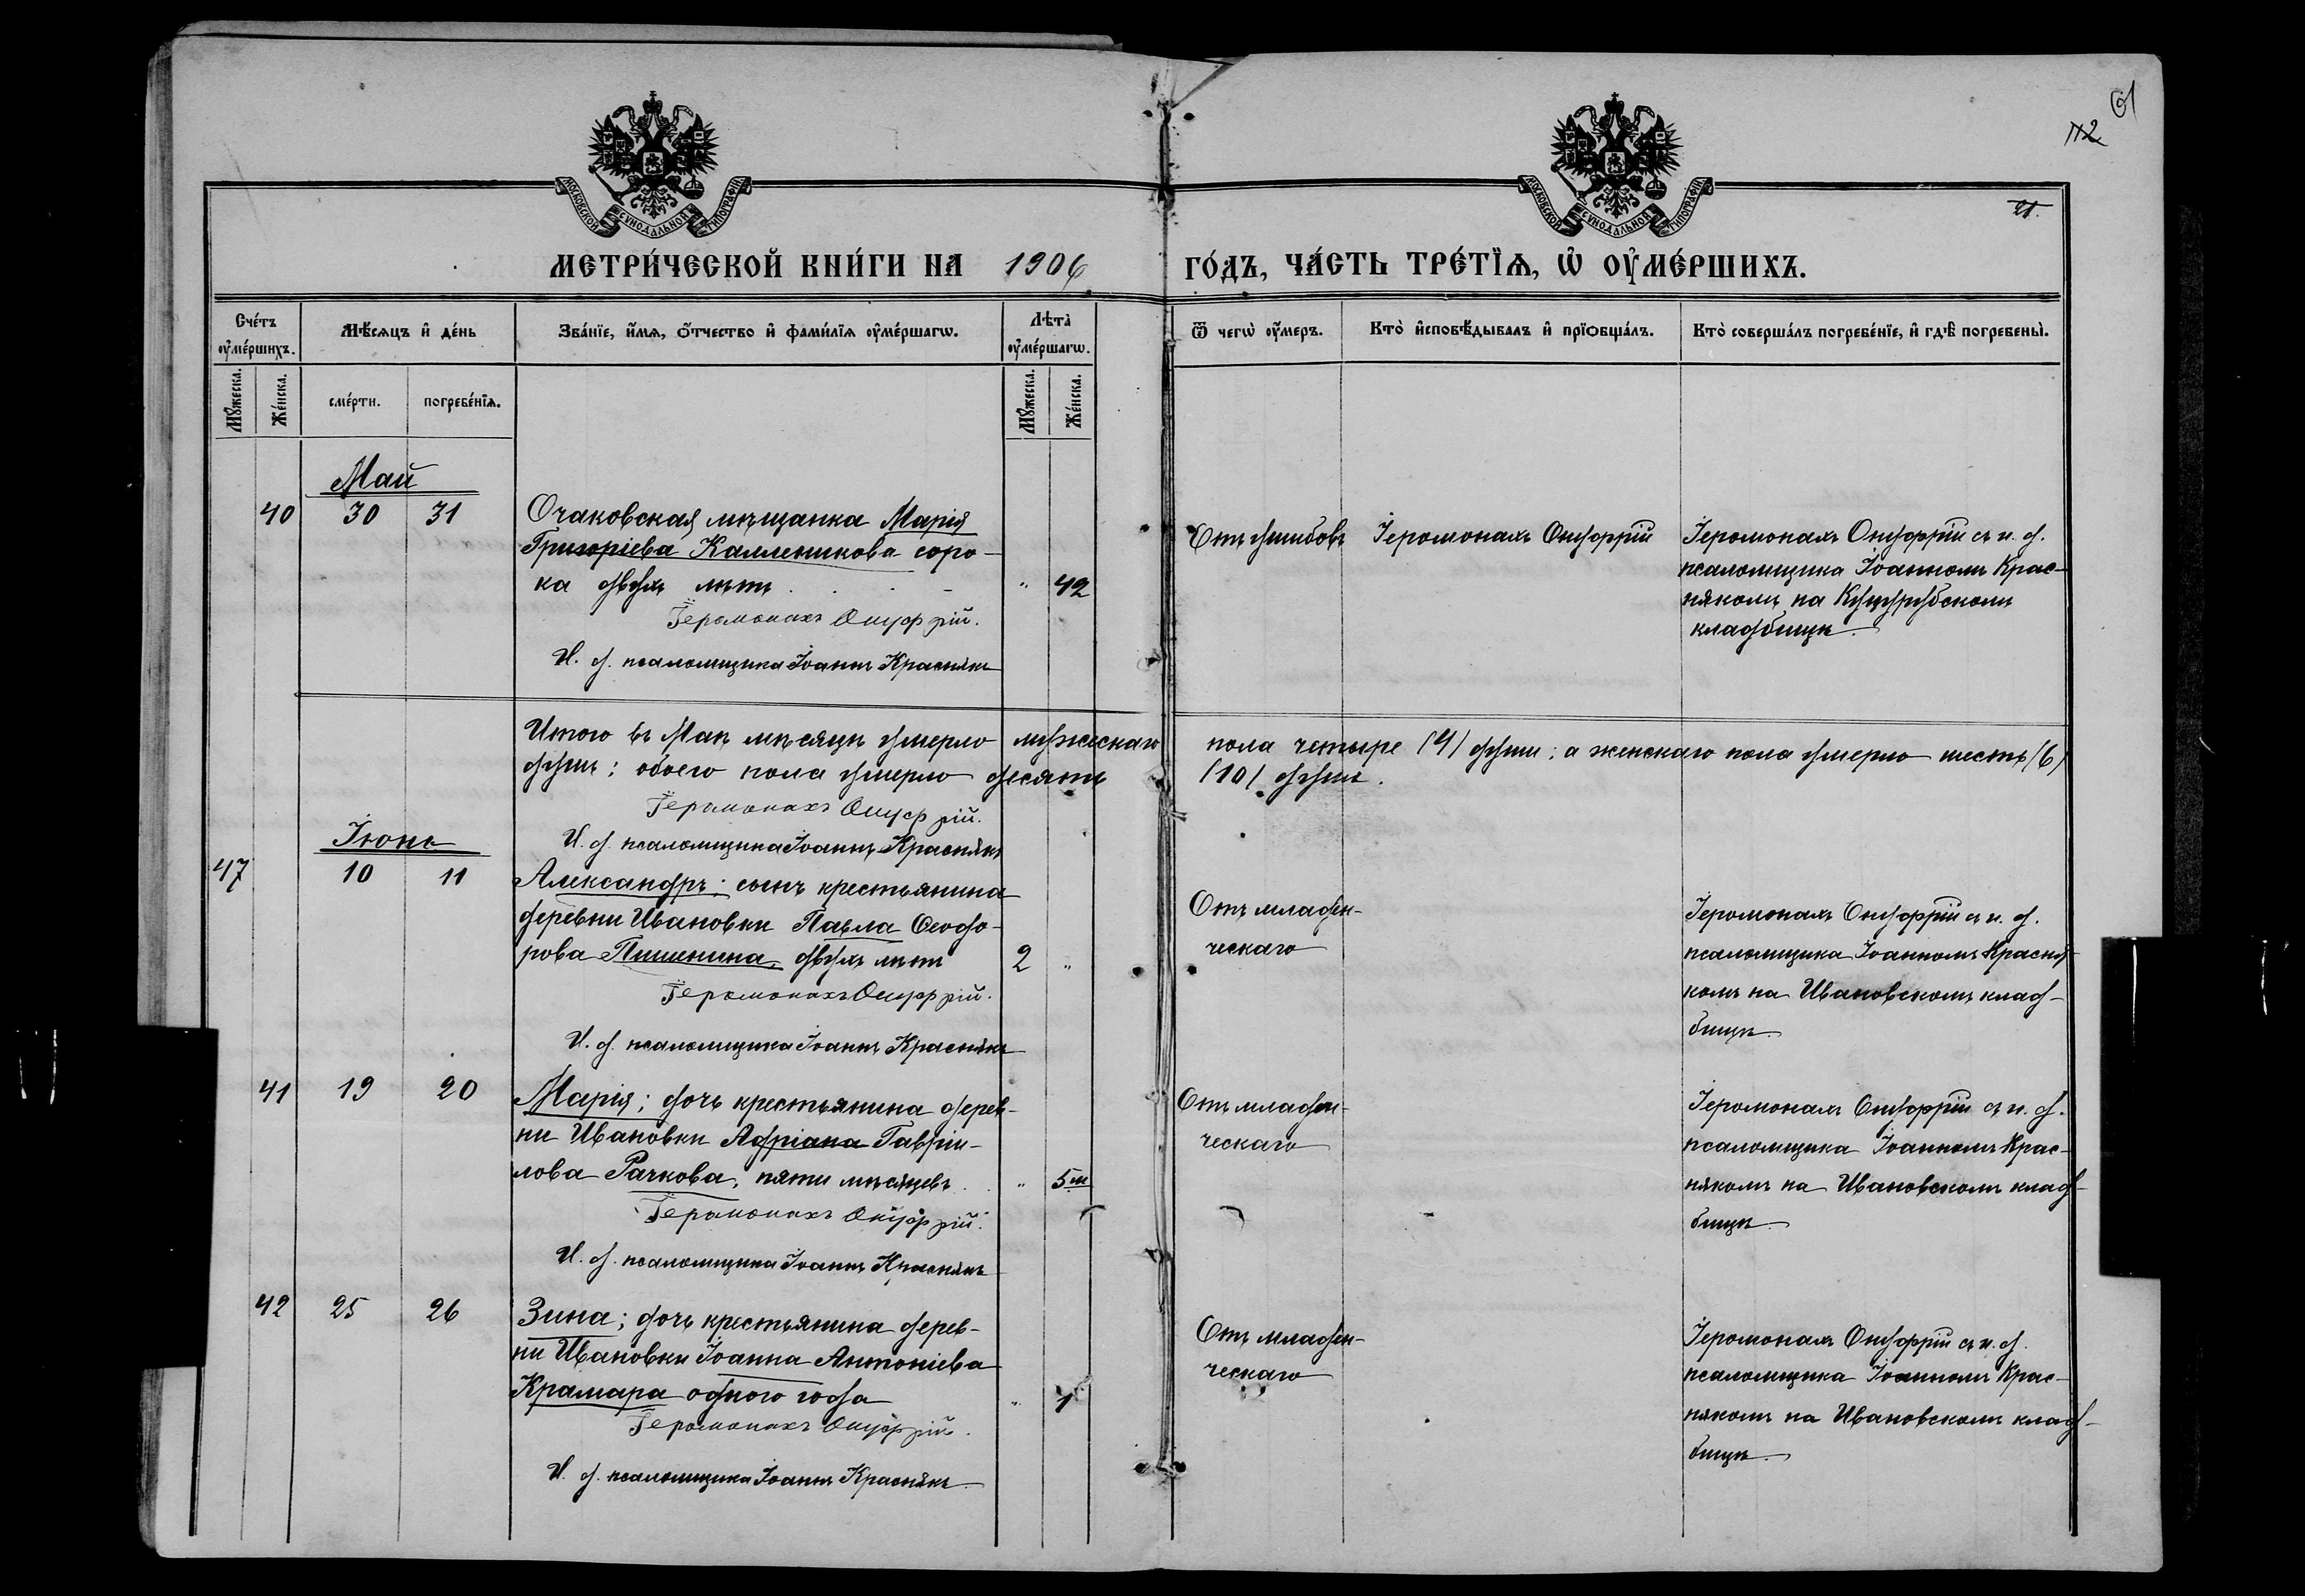 61
112
21.
МОСКОВСКОЙ СѴНОДАЛЬНОЙ ТИПОГРАФІИ
МОСКОВСКОЙ СѴНОДАЛЬНОЙ ТИПОГРАФІИ
МЕТРИ́ЧЕСКОЙ КНИ́ГИ НА 1906 ГО́ДЪ, ЧА́СТЬ ТРЕ́ТЇѦ, Ѡ҆ ОУ҆МЕ́РШИХЪ.
Сче́тъ оу҆ме́ршихъ.
Мѣ́сяцъ и҆ де́нь
Зва́нїе, и҆́мѧ, ѻ҆́тчество и҆ фами́лїѧ оу҆ме́ршагѡ.
Лѣта̀ оу҆ме́ршагѡ.
Ѿ чегѡ̀ оу҆́меръ.
Кто̀ и҆сповѣ́дывалъ и҆ прїѻбща́лъ.
Кто̀ соверша́лъ погребе́нїе, и҆ гдѣ̀ погребены̀.
Мꙋ́жеска.
Же́нска.
сме́рти.
погребе́нїѧ.
Мꙋ́жеска.
Же́нска.
Май
40 30 31 Очаковская мѣщанка Марія
Григоріева Калленикова соро-
ка двухъ лѣтъ " 42
Іеромонахъ Онуфрій.
И. д. псаломщика Іоаннъ Краснякъ
Отъ ушибовъ
Іеромонахъ Онуфрій
Іеромонахъ Онуфрій съ и. д.
псаломщика Іоанномъ Крас-
някомъ на Куцурубскомъ
кладбищѣ.
Итого въ Маѣ мѣсяцѣ умерло мужескаго пола четыре (4) души; а женскаго пола умерло шесть (6)
душъ; обоего пола умерло десять (10) душъ.
Іеромонахъ Онуфрій.
И. д. псаломщика Іоаннъ Краснякъ
Іюнь
47 10 11 Александръ; сынъ крестьянина
деревни Ивановки Павла Ѳеодо-
рова Пишенина, двухъ лѣтъ 2 "
Іеромонахъ Онуфрій.
И. д. псаломщика Іоаннъ Краснякъ
Отъ младен-
ческаго
Іеромонахъ Онуфрій съ и. д.
псаломщика Іоанномъ Красня-
комъ на Ивановскомъклад-
бищѣ.
41 19 20 Марія; дочь крестьянина дерев-
ни Ивановки Адріана Гавріи-
лова Рачкова, пяти мѣсяцевъ " 5 м
Іеромонахъ Онуфрій.
И. д. псаломщика Іоаннъ Краснякъ
Отъ младен-
ческаго
Іеромонахъ Онуфрій съ и. д.
псаломщика Іоанномъ Крас-
някомъ на Ивановскомъ клад-
бищѣ.
42 25 26 Зина; дочь крестьянина дерев-
ни Ивановки Іоанна Антоніева
Крамара одного года " 1
Іеромонахъ Онуфрій.
И. д. псаломщика Іоаннъ Краснякъ
Отъ младен-
ческаго
Іеромонахъ Онуфрій съ и. д.
псаломщика Іоанномъ Крас-
някомъ на Ивановскомъ клад-
бищѣ.